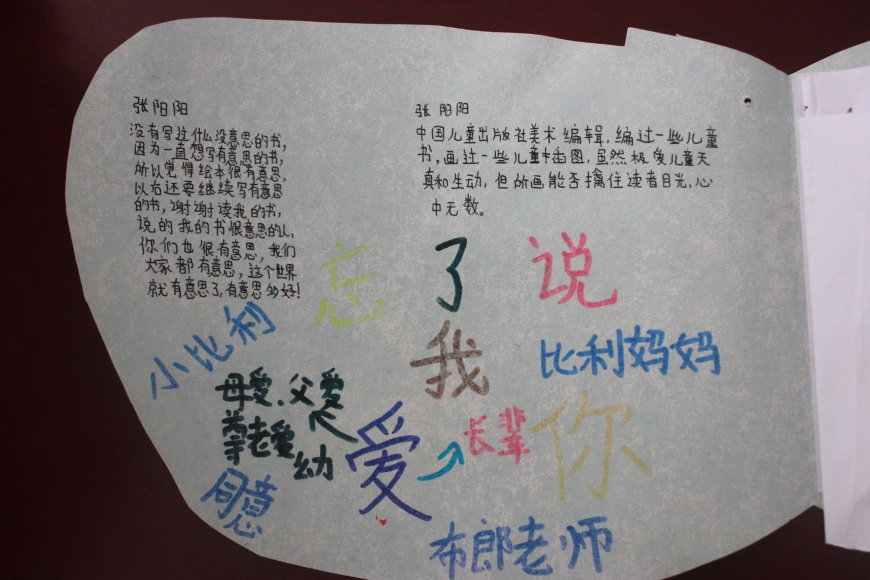 张阳阳
没有写过什么没意思的书,
因为一直想写有意思的书,
所以觉得绘本很有意思,
以后还要继续写有意思
的书,谢谢读我的书,
说的我的书很意思的人,
你们也很有意思,我们
大家都有意思,这个世界
就有意思了,有意思多好!
张阳阳
中国儿童出版社美术编辑,编过一些儿童
书,画过一些儿童插图,虽然极爱儿童天
真和生动,但所画能否擒住读者目光,心
中无数。
忘了说
我
爱
你
小比利
比利妈妈
母爱、父爱
尊老爱
幼
长辈
同意
布郎老师